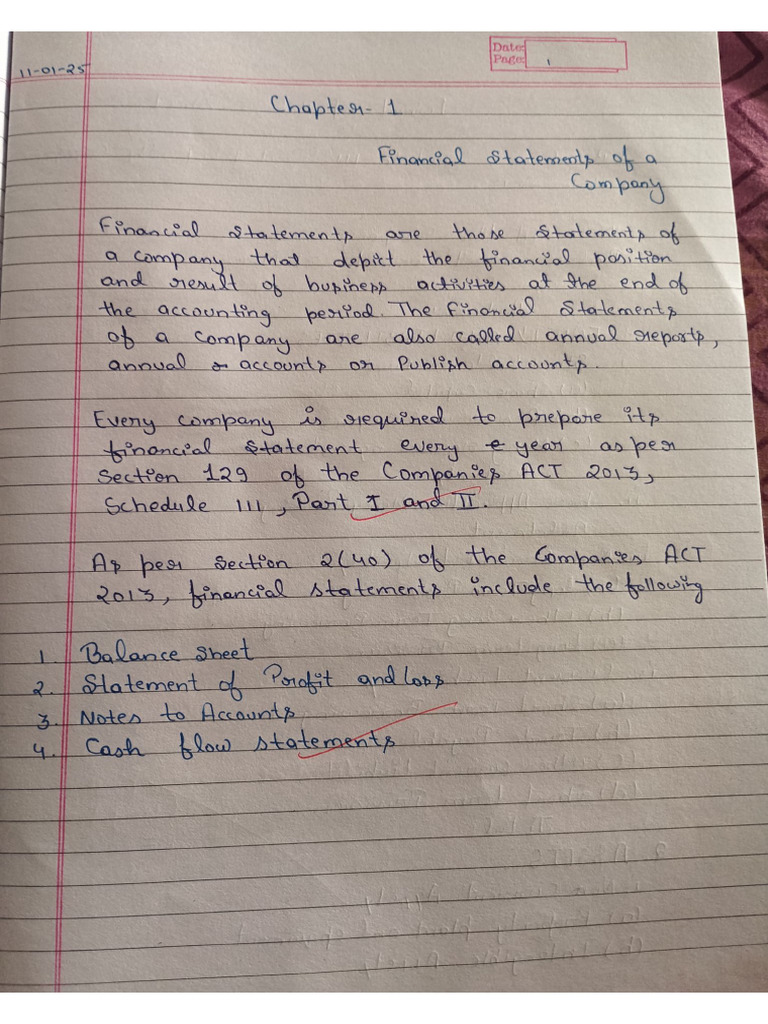 Date:
Page: 1
11-01-25
Chapter- 1
Financial Statements of a
Company
Financial Statements are those Statements of
a company that depict the financial position
and result of business activities at the end of
the accounting period. The Financial Statements
of a company are also called annual reports,
annual accounts or Publish accounts.
Every company is required to prepare its
financial Statement every year as per
Section 129 of the Companies ACT 2013,
Schedule III, Part I and II.
As per Section 2(40) of the Companies ACT
2013, financial statements include the following
1. Balance Sheet
2. Statement of Profit and Loss
3. Notes to Accounts
4. Cash flow statements